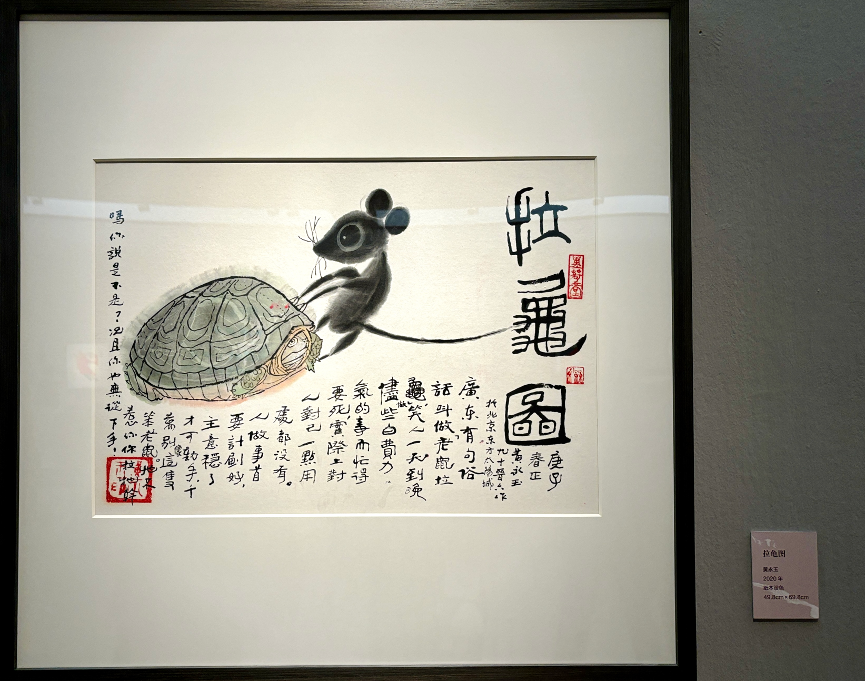 拉龜圖
庚子
春正
黃永玉
九十晉六作
於北京東方太陽城
廣东有句俗
話叫做老鼠拉
龜笑人一天到晚
儘做些白費力
氣的事而忙得
要死，實際上對
人對己一點用
處都沒有。
人做事首
要計劃妙，
主意穩了
才可動手，千
萬別學這隻
笨老鼠。牠又
惹你你拉牠幹
嗎你說是不是？况且你也無從下手！
拉龟图
黄永玉
2020 年
纸本设色